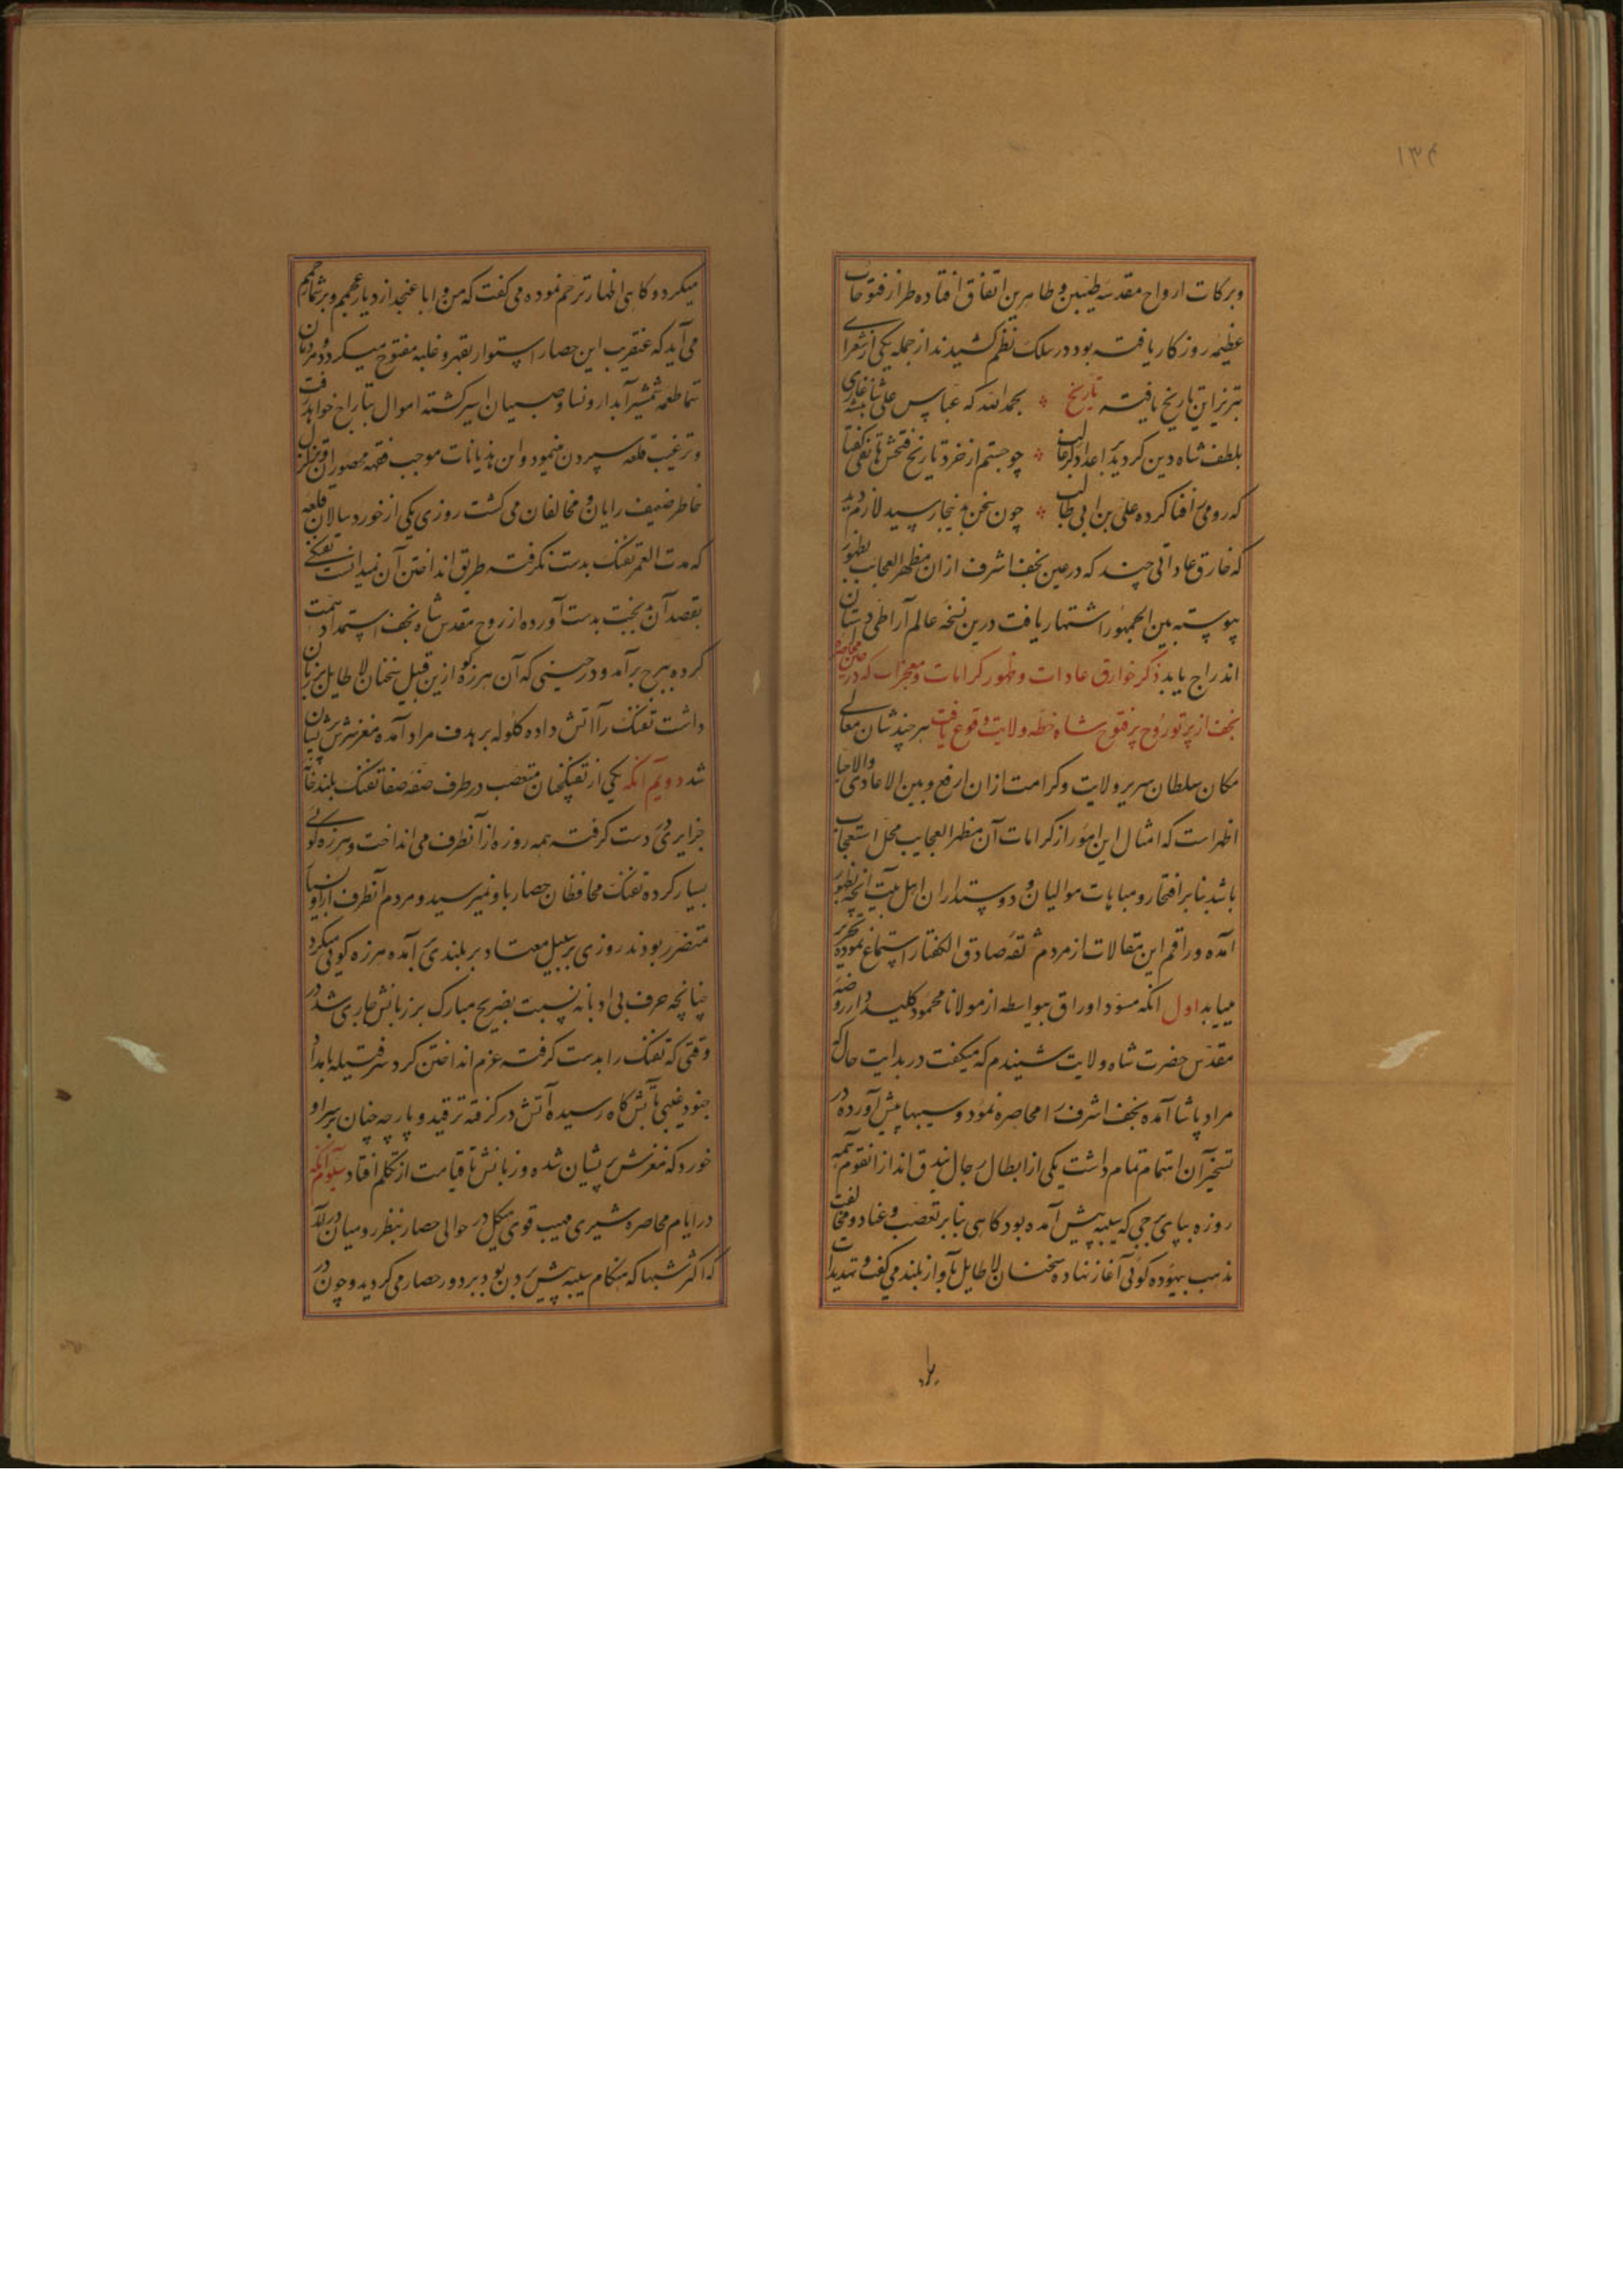 ۱۳۴
وبرکات ارواح مقدسه طیبین و طاهرین اتفاق افتاده طراز فتوحات
عظیمه روزکار یافته بود در سلک نظم کشیدند از جمله یکی از شعرای
تبریز این تاریخ یافته تاریخ بحمدالله که عباس علی شانغازی
بلطف شاه دین کردید بر اعدا دکر غالب چو جستم از خرد تاریخ فتحش هاتفی کفتا
که رومی را فنا کرده علی بن ابی طالب چون سخن بدینجا رسید لازم دید
که خارق عاداتی چند که در عین نجف اشرف ازان مظهر العجایب بظهور
پیوسته بین الجمهور اشتهار یافت درین نسخه عالم آرا طی داستان
اندراج یابد ذکر خوارق عادات و ظهور کرامات و معجزات که در حین محاصره
نجف از پرتو روح پرفتوح شاه خطه ولایت وقوع یافت هر چند شان معالی
مکان سلطان سریر ولایت و کرامت ازان ارفع و بین الاعادی والاحبا
اظهر است که امثال این امور از کرامات آن مظهر العجایب محل استعجاب
باشد بنابر افتخار و مباهات موالیان و دوستداران اهل بیت آنچه بظهور
آمده و راقم این مقالات از مردم ثقه صادق الکفتار استماع نموده تحریر
مییابد اول انکه مسود اوراق بیواسطه از مولانا محمود کلیددار روضه
مقدس حضرت شاه ولایت شنیدم که میکفت در بدایت حال که
مراد پاشا آمده نجف اشرف را محاصره نمود و سیبها پیش آورده در
تسخیر آن اهتمام تمام داشت یکی از ابطال رجال بندق انداز انقوم همه
روزه بپای برجی که سیبه پیش آمده بود کاهی بنابر تعصب و عناد و مخالفت
مذهب بیهوده کوئی آغاز نهاده سخنان لاطایل بآواز بلند می کفت و تهدیدات
میکرد و کاهی اظهار ترحم نموده می کفت که من و ابا عنجد از دیار عجمم و بر شما رحمم
می آید که عنقریب این حصار استوار بقهر و غلبه مفتوح میکردد و مردمان
شما طعمه شمشیر آبدار و نسا و صبیان اسیر کشته اموال بتاراج خواهد رفت
و ترغیب قلعه سپردن مینمود و این هذیانات موجب قهقهه محصوران و تزلزل
خاطر ضعیف رایان و مخالفان می کشت روزی یکی از خورد سالان قلعه
که مدت العمر تفنک بدست نکرفته طریق انداختن آن نمیدانست تفنکی
بقصد آن بدبخت بدست آورده از روح مقدس شاه نجف استمداد همت
کرده ببرج برآمد و در حینی که آن هرزه کو ازین قبیل سخنان لاطایل بر زبان
داشت تفنک را آتش داده کلوله بر هدف مراد آمده مغز سرش پریشان
شد دویم آنکه یکی از تفنکچیان متعصب در طرف صفه صفا تفنک بلند خانه
جزایری در دست کرفته همه روزه از آنطرف می انداخت و هرزه کوئی
بسیار کرده تفنک محافظان حصار باو نمیرسید و مردم آنطرف از او
متضرر بودند روزی بر سبیل معتاد بر بلندی بر آمده هرزه کوئی میکرد
چنانچه حرف بی ادبانه نسبت بضریح مبارک بر زبانش جاری شد در
وقتی که تفنک را بدست کرفته عزم انداختن کرد سر فتیله بامداد
جنود غیبی بآتش کاه رسیده آتش در کرفته ترقید و پارچه چنان بر سر او
خورد که مغزش پریشان شده و زبانش تا قیامت از تکلم افتاد سیوم آنکه
در ایام محاصره شیری مهیب قوی هیکل در حوالی حصار بنظر رومیان درآمد
که اکثر شبها که هنکام سیبه پیش بردن بود بر دور حصار می کردید و چون در